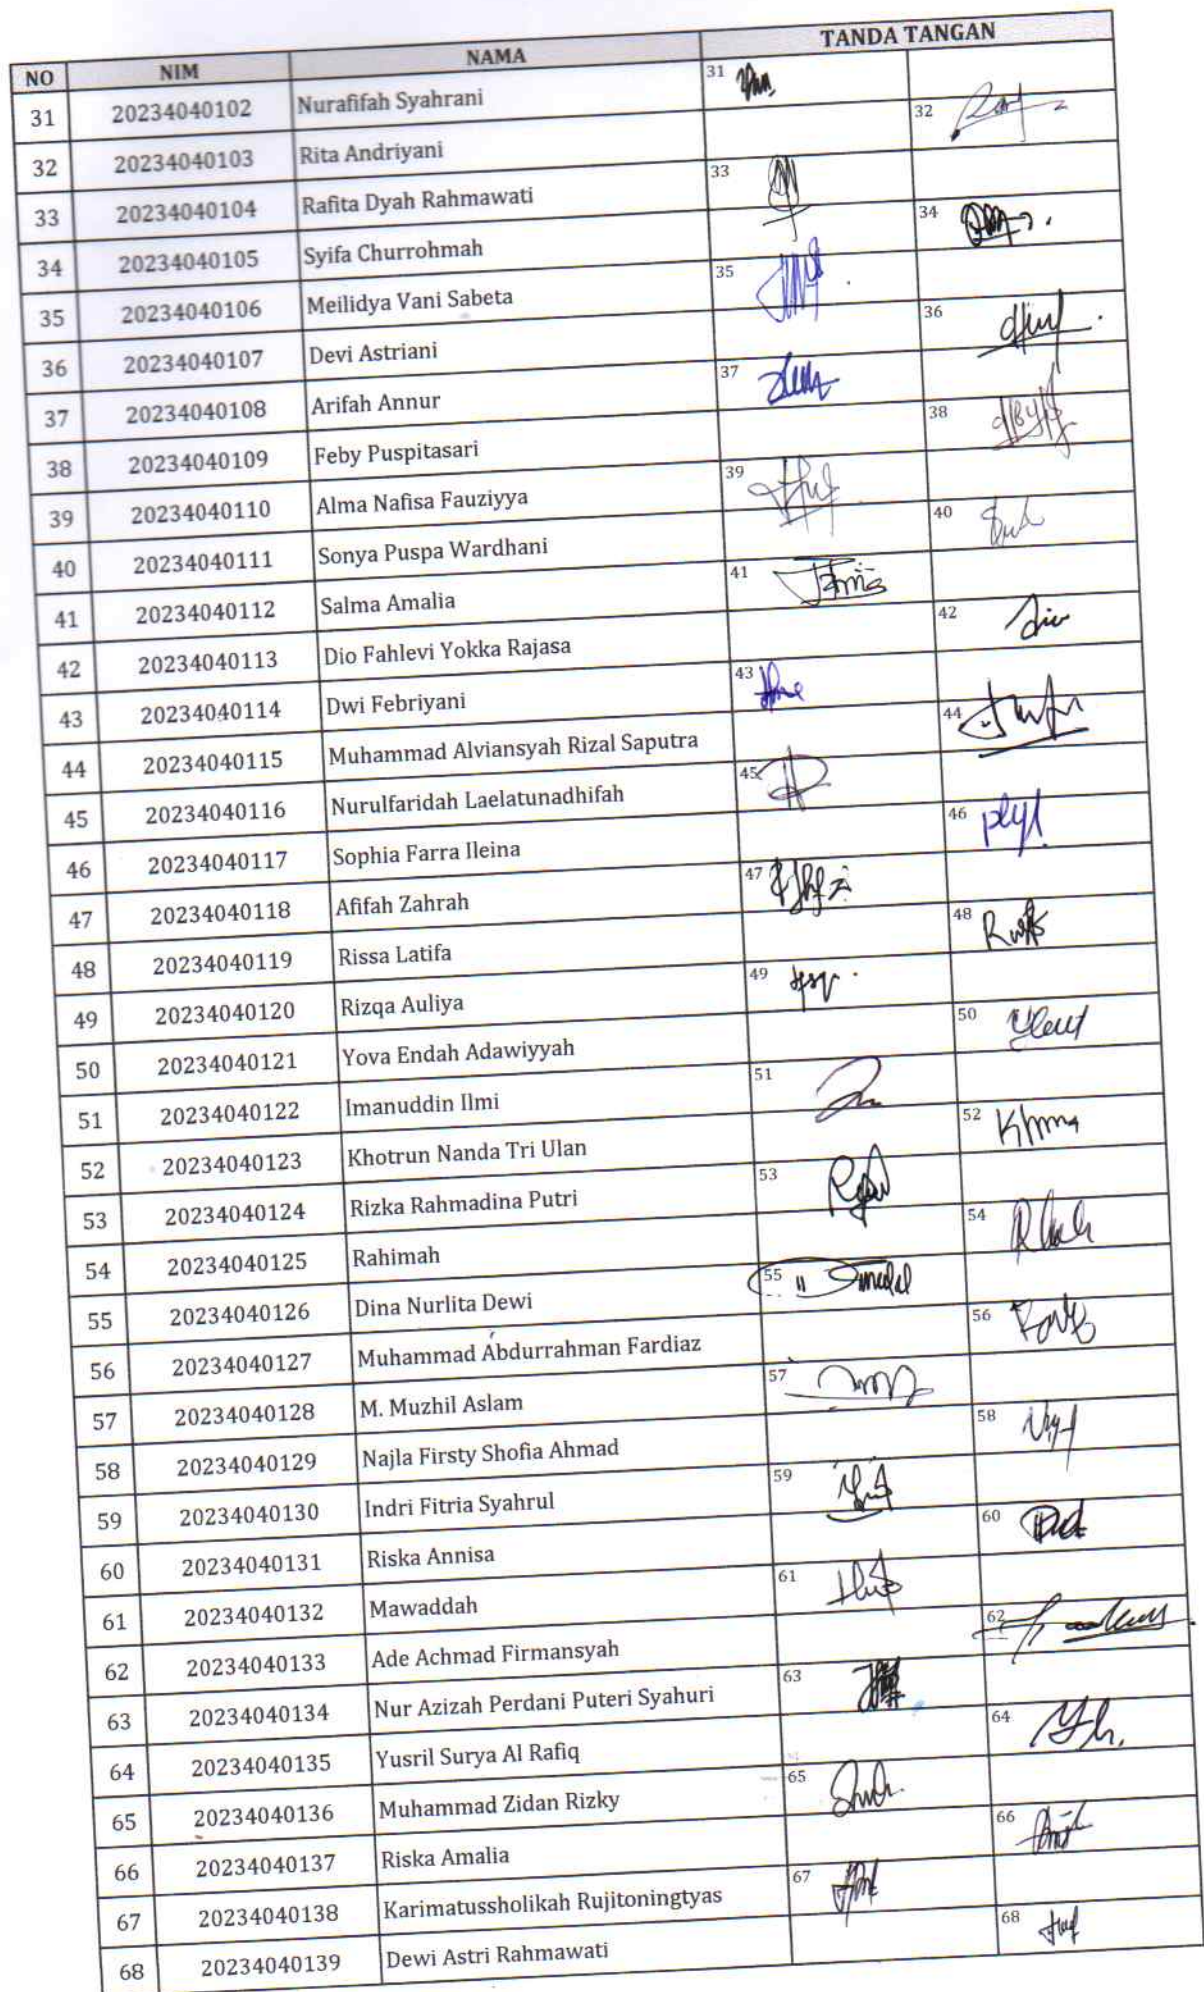 NO NIM NAMA TANDA TANGAN
31 20234040102 Nurafifah Syahrani 31
32 20234040103 Rita Andriyani 32
33 20234040104 Rafita Dyah Rahmawati 33
34 20234040105 Syifa Churrohmah 34
35 20234040106 Meilidya Vani Sabeta 35
36 20234040107 Devi Astriani 36
37 20234040108 Arifah Annur 37
38 20234040109 Feby Puspitasari 38
39 20234040110 Alma Nafisa Fauziyya 39
40 20234040111 Sonya Puspa Wardhani 40
41 20234040112 Salma Amalia 41
42 20234040113 Dio Fahlevi Yokka Rajasa 42
43 20234040114 Dwi Febriyani 43
44 20234040115 Muhammad Alviansyah Rizal Saputra 44
45 20234040116 Nurulfaridah Laelatunadhifah 45
46 20234040117 Sophia Farra Ileina 46
47 20234040118 Afifah Zahrah 47
48 20234040119 Rissa Latifa 48
49 20234040120 Rizqa Auliya 49
50 20234040121 Yova Endah Adawiyyah 50
51 20234040122 Imanuddin Ilmi 51
52 20234040123 Khotrun Nanda Tri Ulan 52
53 20234040124 Rizka Rahmadina Putri 53
54 20234040125 Rahimah 54
55 20234040126 Dina Nurlita Dewi 55
56 20234040127 Muhammad Abdurrahman Fardiaz 56
57 20234040128 M. Muzhil Aslam 57
58 20234040129 Najla Firsty Shofia Ahmad 58
59 20234040130 Indri Fitria Syahrul 59
60 20234040131 Riska Annisa 60
61 20234040132 Mawaddah 61
62 20234040133 Ade Achmad Firmansyah 62
63 20234040134 Nur Azizah Perdani Puteri Syahuri 63
64 20234040135 Yusril Surya Al Rafiq 64
65 20234040136 Muhammad Zidan Rizky 65
66 20234040137 Riska Amalia 66
67 20234040138 Karimatussholikah Rujitoningtyas 67
68 20234040139 Dewi Astri Rahmawati 68